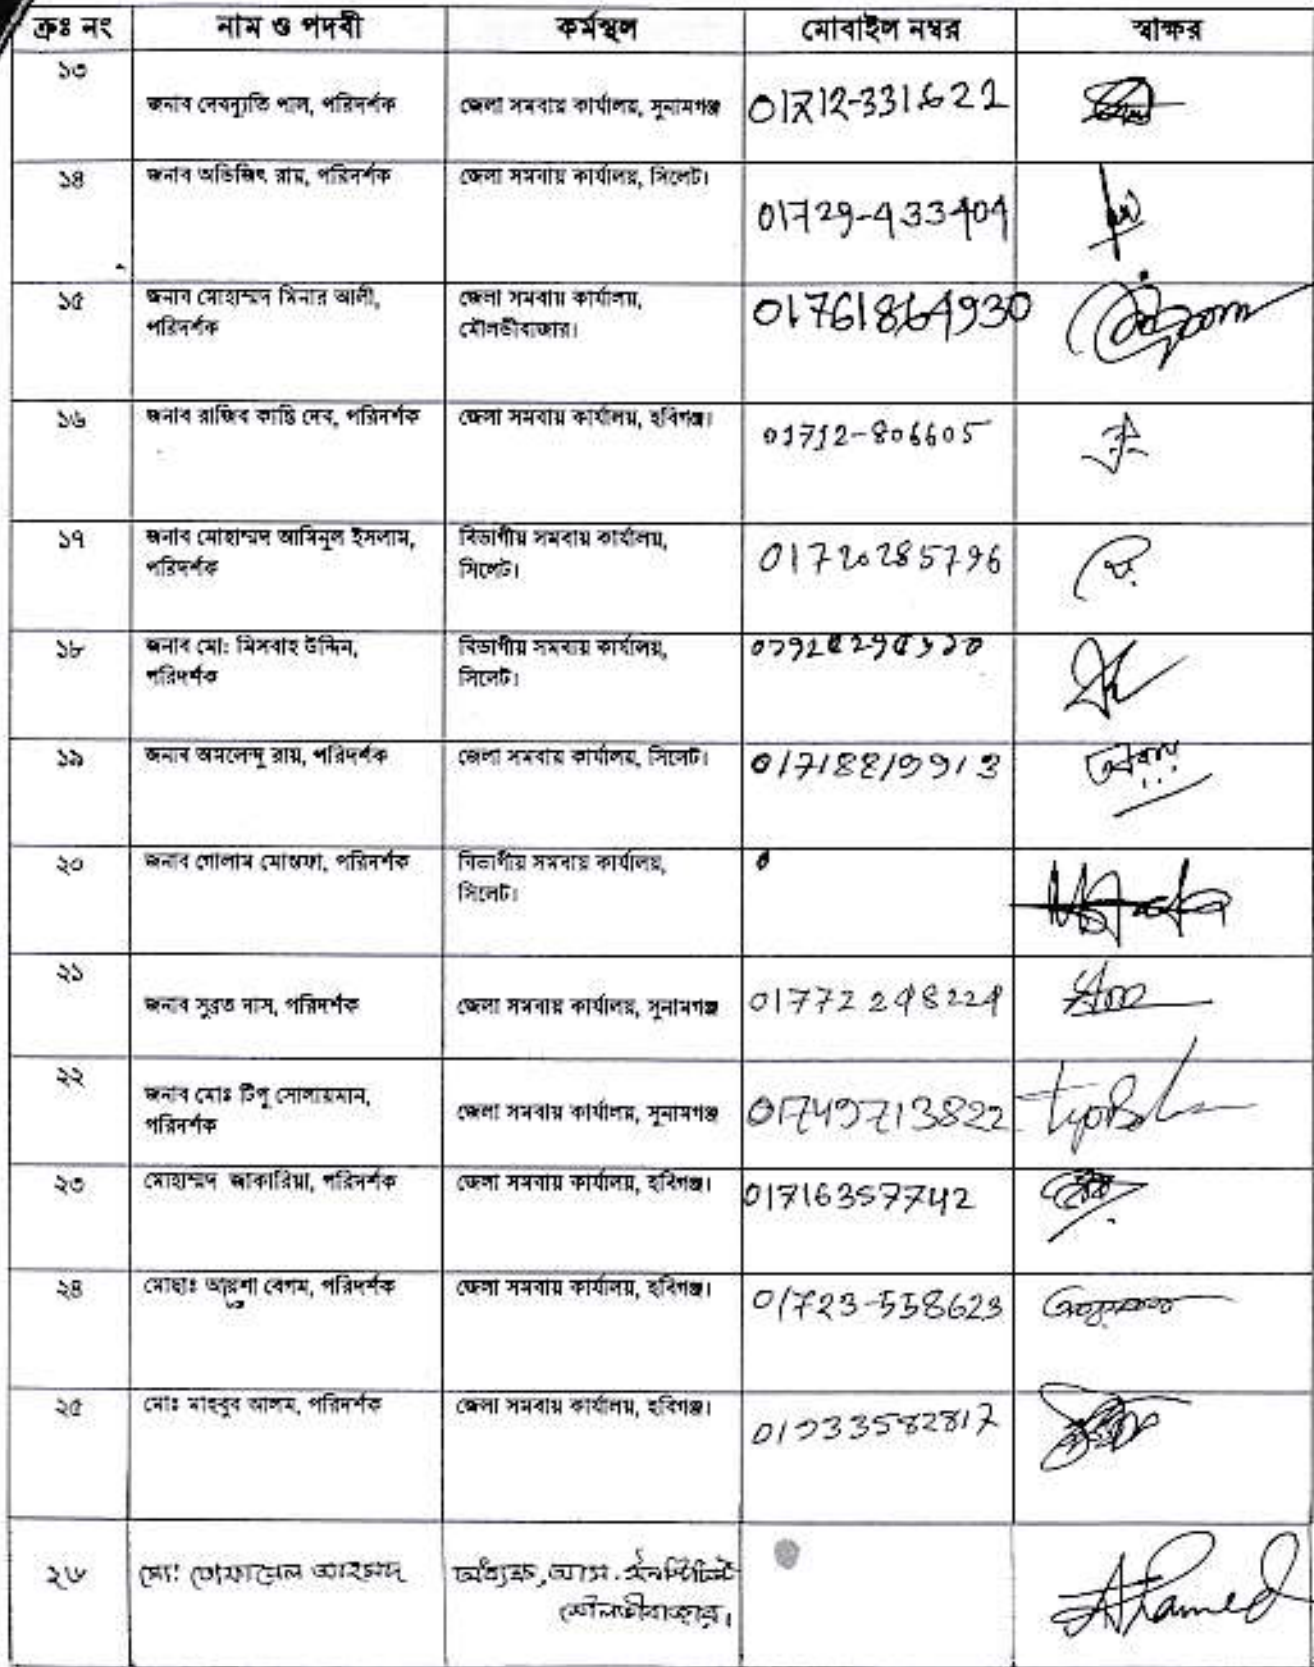 ক্রঃ নং নাম ও পদবী কর্মস্থল মোবাইল নম্বর স্বাক্ষর
১৩
জনাব দেবদ্যুতি পাল, পরিদর্শক জেলা সমবায় কার্যালয়, সুনামগঞ্জ 01712-331622
১৪ জনাব অভিজিৎ রায়, পরিদর্শক জেলা সমবায় কার্যালয়, সিলেট।
01729-433404
১৫ জনাব মোহাম্মদ মিনার আলী, জেলা সমবায় কার্যালয়, 01761864930
পরিদর্শক মৌলভীবাজার।
১৬ জনাব রাজিব কান্তি দেব, পরিদর্শক জেলা সমবায় কার্যালয়, হবিগঞ্জ। 01712-806605
১৭ জনাব মোহাম্মদ আমিনুল ইসলাম, বিভাগীয় সমবায় কার্যালয়, 01720285796
পরিদর্শক সিলেট।
১৮ জনাব মো: মিসবাহ উদ্দিন, বিভাগীয় সমবায় কার্যালয়,
পরিদর্শক সিলেট।
১৯ জনাব অমলেন্দু রায়, পরিদর্শক জেলা সমবায় কার্যালয়, সিলেট। 01718819913
২০ জনাব গোলাম মোস্তফা, পরিদর্শক বিভাগীয় সমবায় কার্যালয়,
সিলেট।
২১
জনাব সুব্রত দাস, পরিদর্শক জেলা সমবায় কার্যালয়, সুনামগঞ্জ 01772248224
২২
জনাব মোঃ টিপু সোলায়মান, জেলা সমবায় কার্যালয়, সুনামগঞ্জ 01749713822
পরিদর্শক
২৩ মোহাম্মদ জাকারিয়া, পরিদর্শক জেলা সমবায় কার্যালয়, হবিগঞ্জ। 01716357742
২৪ মোছাঃ আয়েশা বেগম, পরিদর্শক জেলা সমবায় কার্যালয়, হবিগঞ্জ। 01723-558623
২৫ মোঃ মাহবুব আলম, পরিদর্শক জেলা সমবায় কার্যালয়, হবিগঞ্জ। 01933582817
২৬ মো: তোফায়েল আহম্মদ অধ্যক্ষ, আস. ইনস্টিটিউট Ahamed
মৌলভীবাজার।